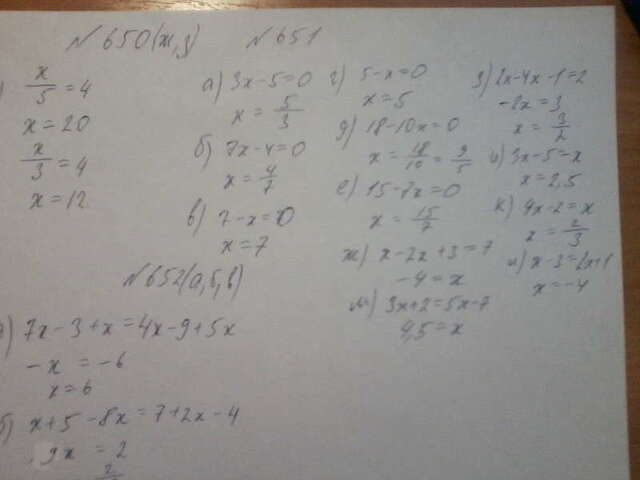 №650(ж,з)
x/5=4
x=20
x/3=4
x=12
№651
а) 3x-5=0
x=5/3
б) 7x-4=0
x=4/7
в) 7-x=0
x=7
г) 5-x=0
x=5
д) 18-10x=0
x=18/10=9/5
е) 15-7x=0
x=15/7
ж) x-2x+3=7
-4=x
м) 3x+2=5x-7
4,5=x
з) 2x-4x-1=2
-2x=3
x=3/2
и) 3x-5=x
x=2.5
к) 4x-2=x
x=2/3
л) x-3=2x+1
x=-4
№652(а,б,в)
а) 7x-3+x=4x-9+5x
-x=-6
x=6
б) x+5-8x=7+2x-4
9x=2